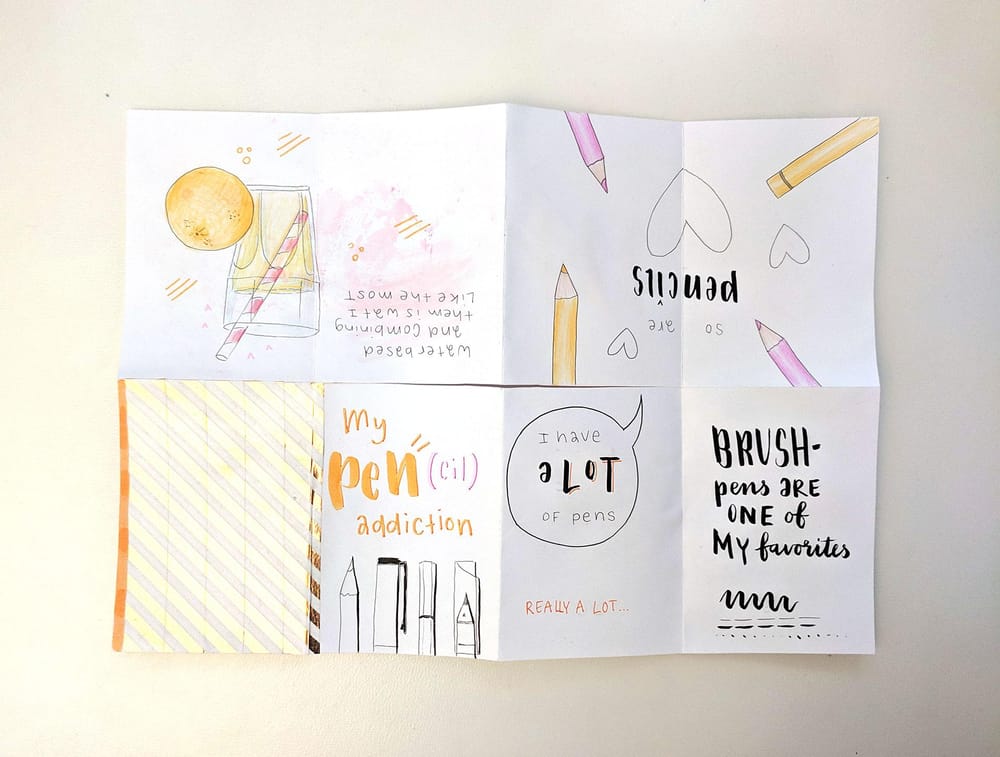 My
pen(cil)
addiction
I have
a LOT
OF pens
REALLY A LOT...
BRUSH-
pens aRE
ONE of
MY favorites
so are
pencils
waterbased
and combining
them is wat I
Like the most